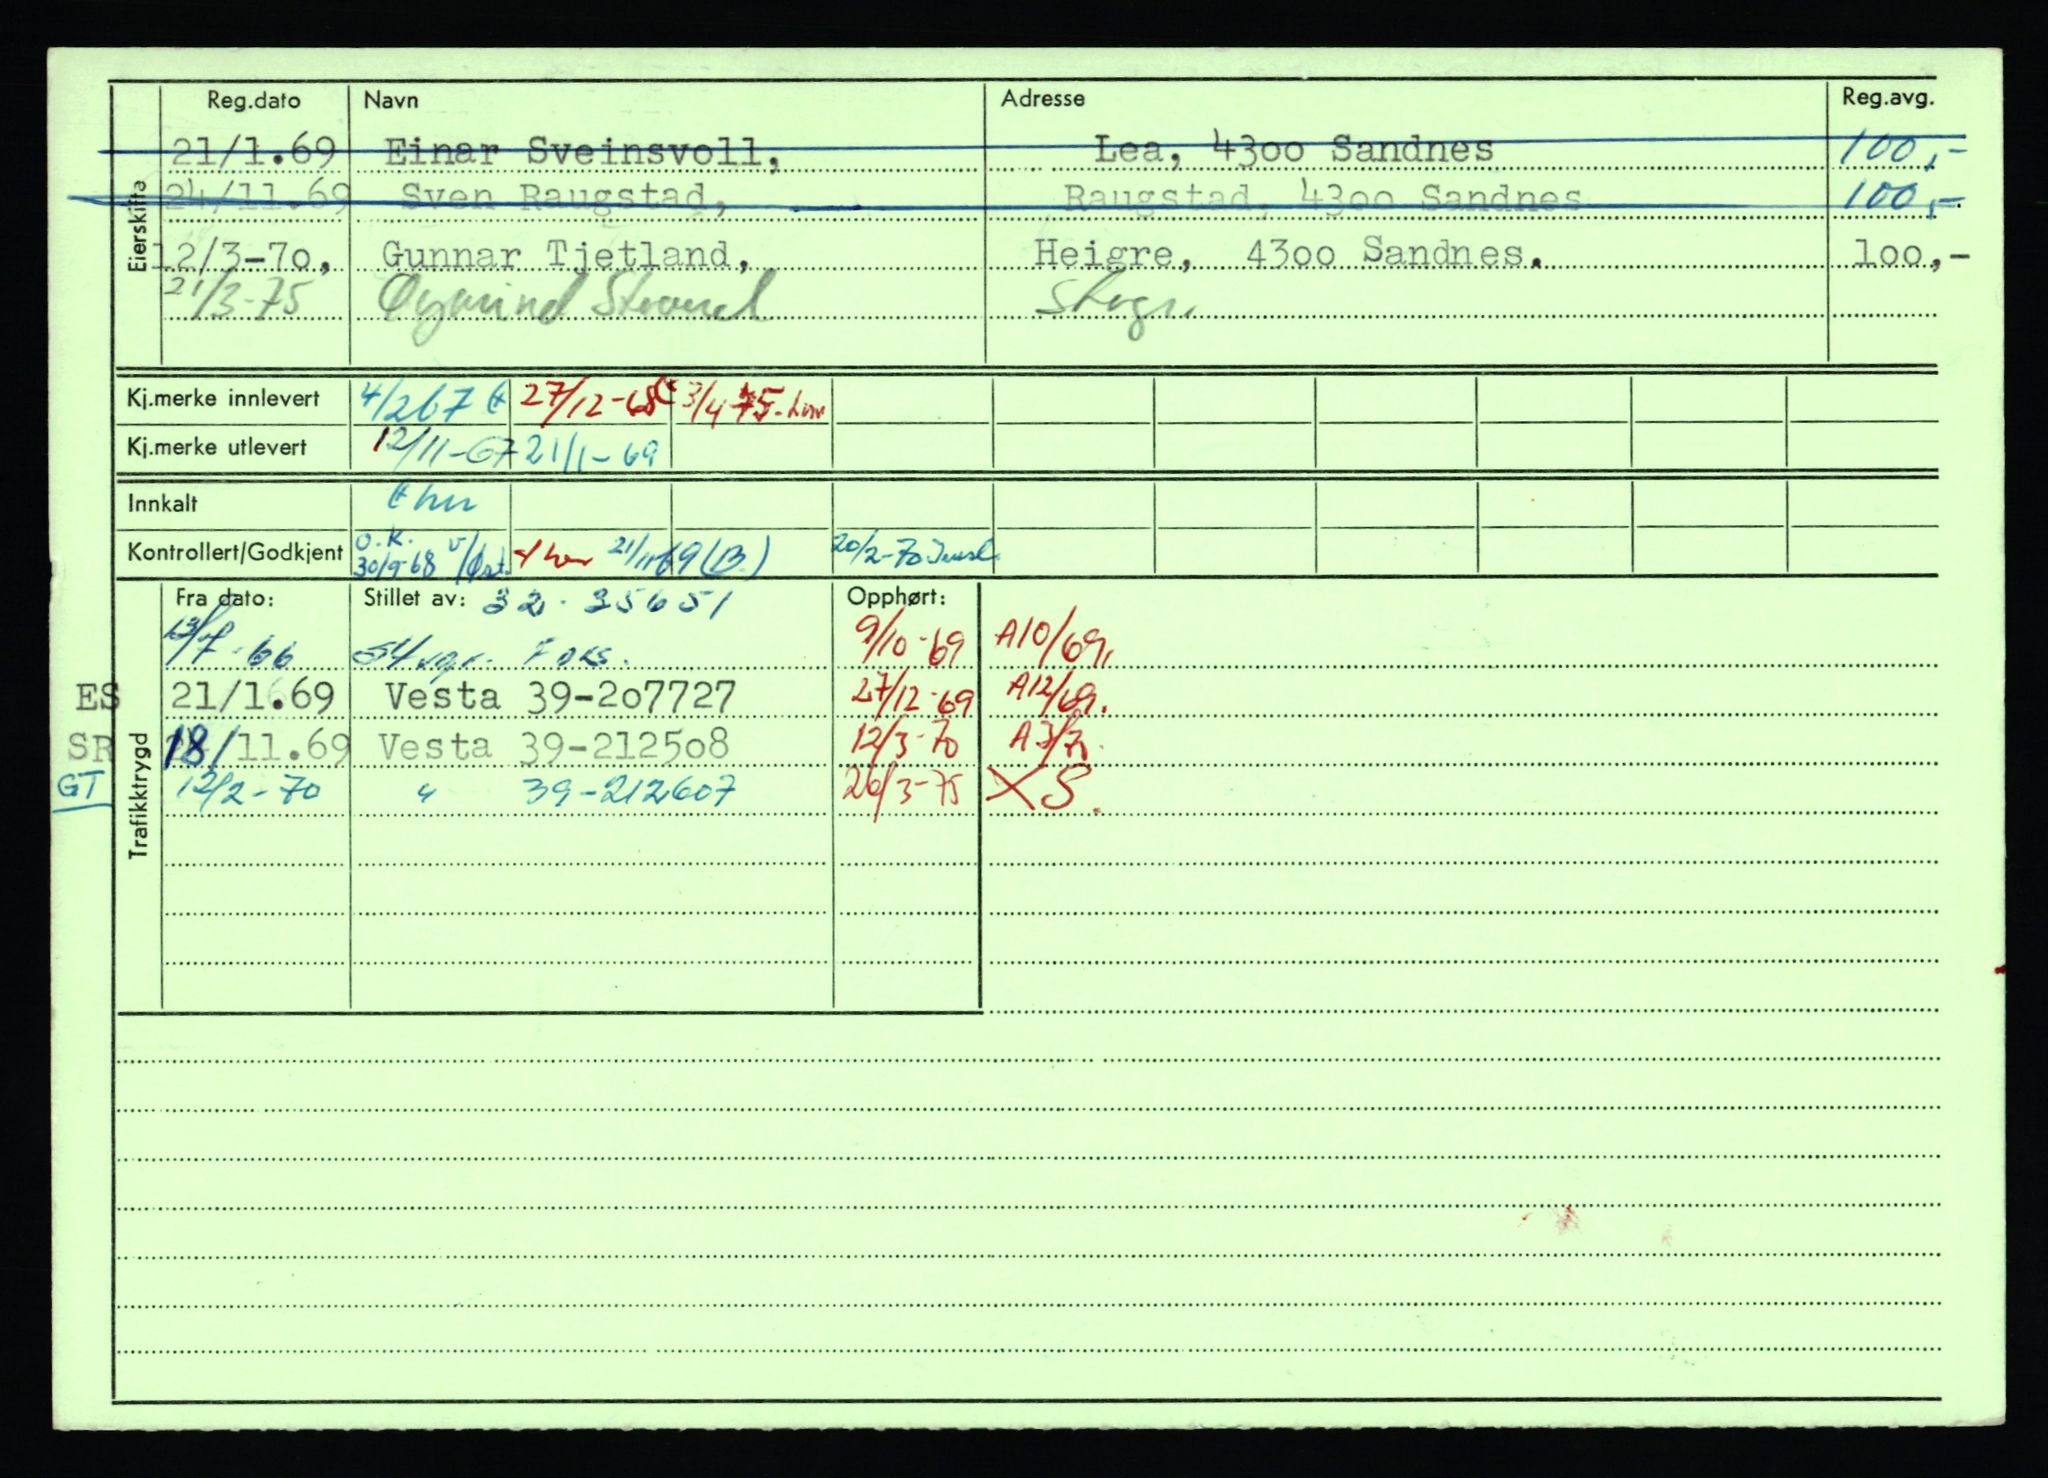 Reg.dato Navn Adresse Reg.avg.
21/1.69 Einar Sveinsvoll, Lea, 4300 Sandnes 100,-
24/11.69 Sven Raugstad, Raugstad, 4300 Sandnes 100,-
12/3-70, Gunnar Tjetland, Heigre, 4300 Sandnes. 100,-
21/3-75 Øyvind Strand
Eierskifte
Kj.merke innlevert 4/2 67 27/12-68 3/4 75
Kj.merke utlevert 12/11-67 21/1-69
Innkalt
Kontrollert/Godkjent O.K. 30/9-68 v/Øst. 21/11 69 (B.) 20/2-70
Fra dato: Stillet av: 32-35651 Opphørt:
66 9/10-69 A10/69.
ES 21/1.69 Vesta 39-207727 27/12-69 A12/69.
SR 18/11.69 Vesta 39-212508 12/3-70 A3/70.
GT 12/2-70 " 39-212607 26/3-75 XS.
Trafikktrygd